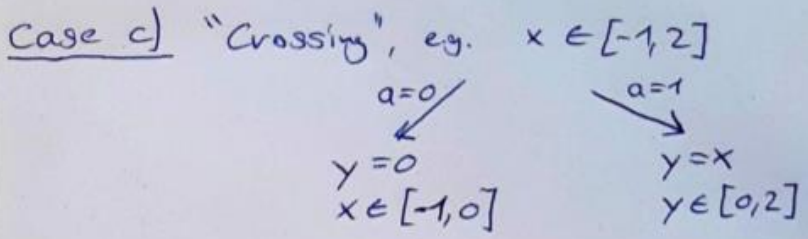 Case c) "Crossing", e.g. x ∈ [-1,2]
a=0 a=1
y=0 y=x
x ∈ [-1,0] y ∈ [0,2]